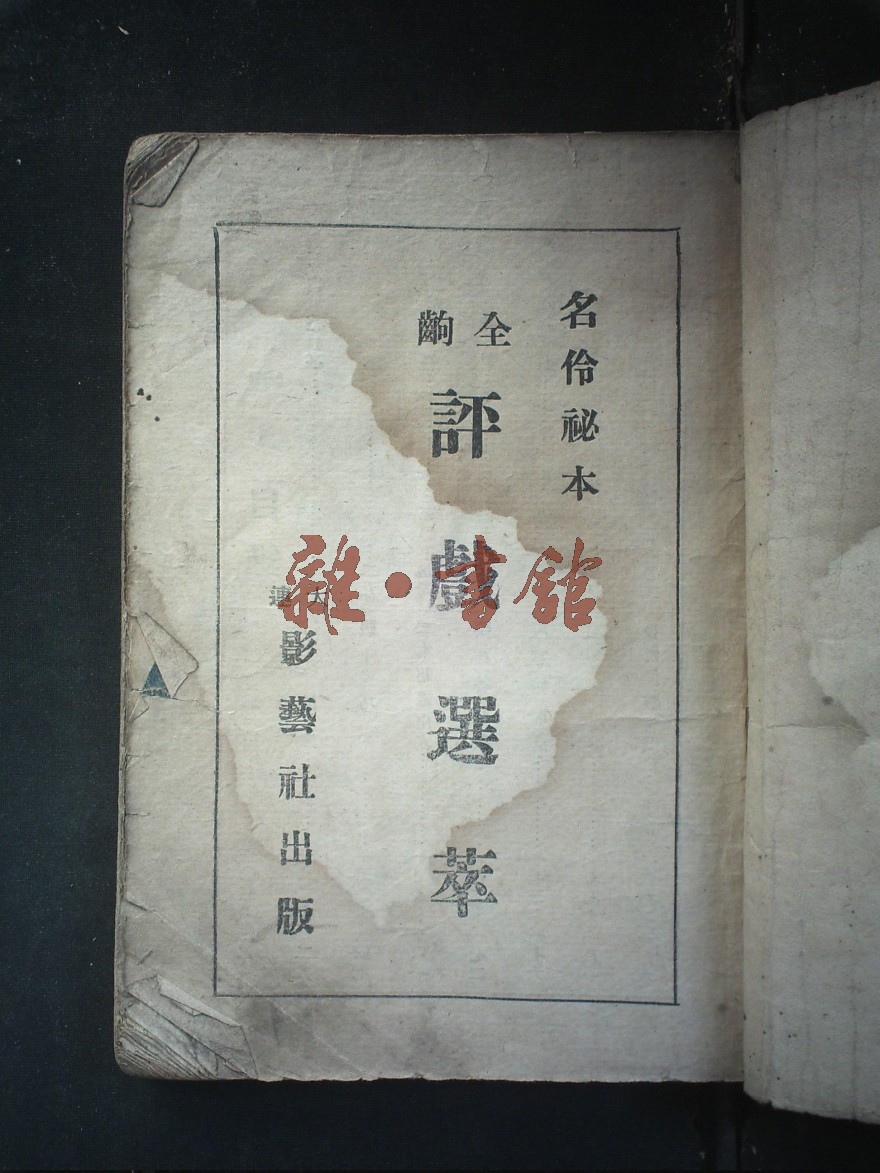 名伶祕本
全齣
評戲選萃
大連
影藝社出版
雜·書館